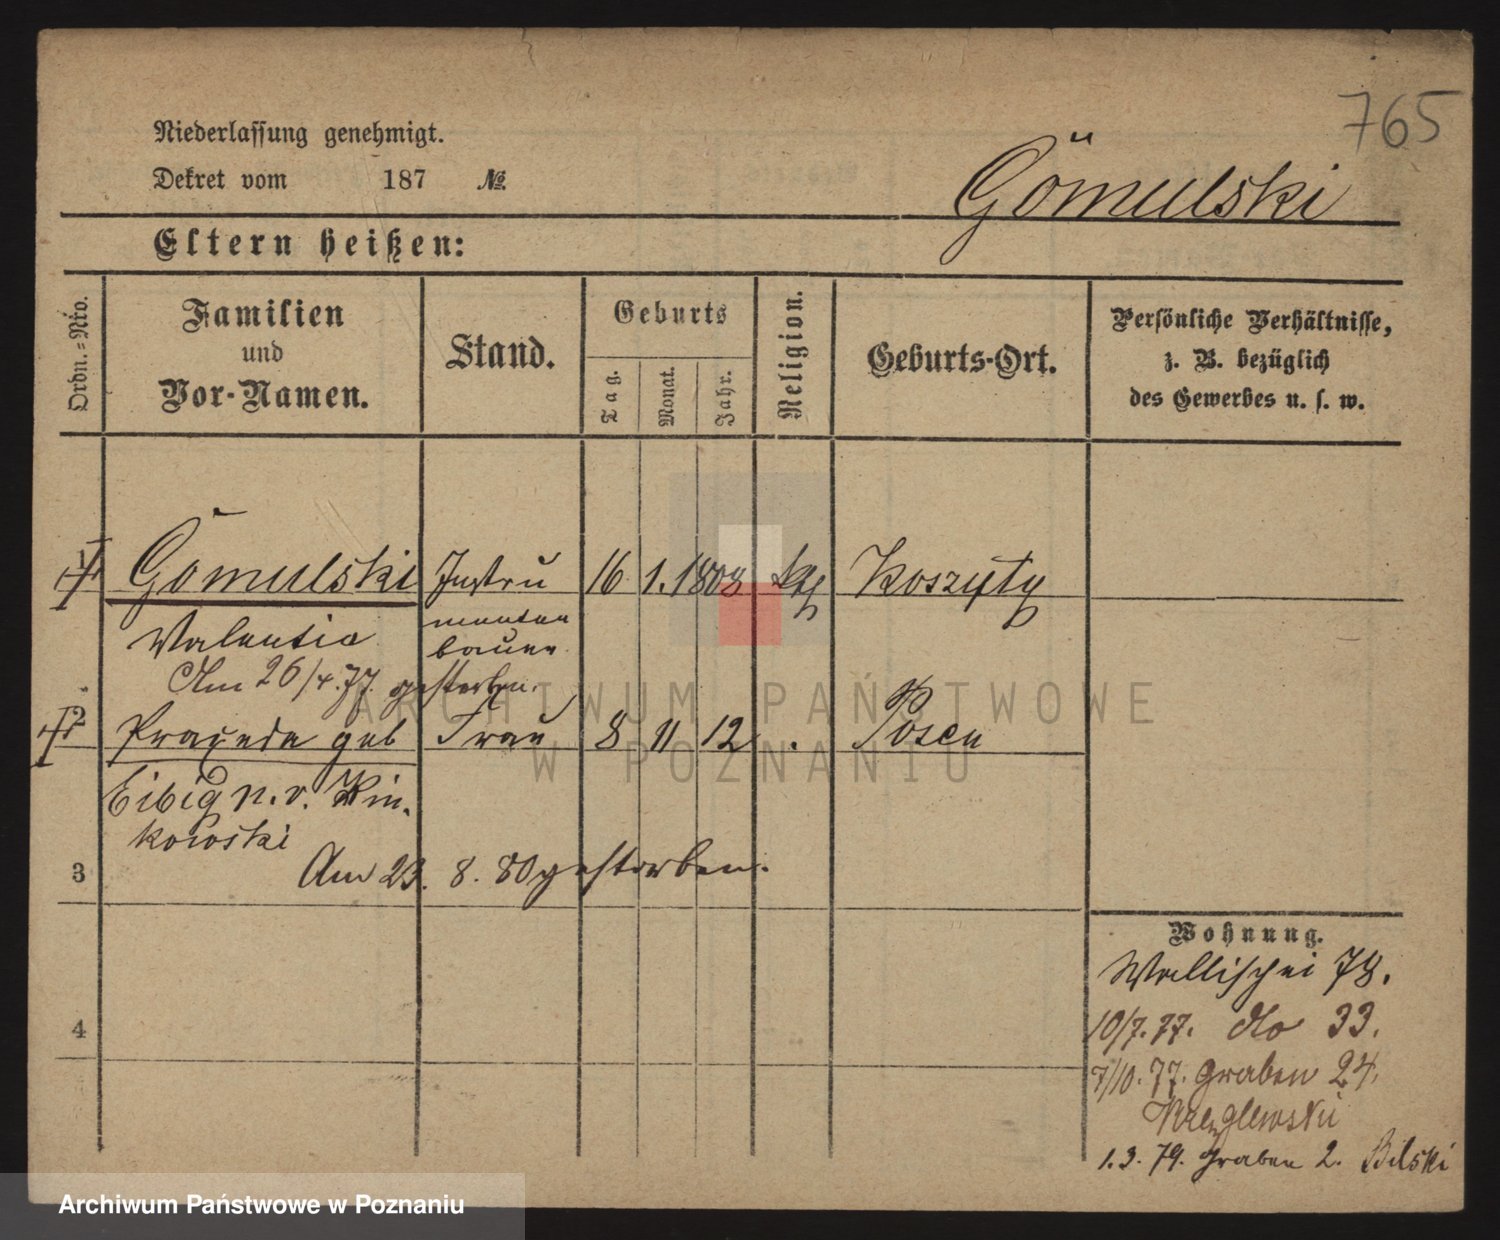 765
Niederlassung genehmigt.
Dekret vom 187 №
Gömulski
Eltern heißen:
Ordn.=Nro.
Familien
und
Vor-Namen.
Stand.
Geburts
Tag.
Monat.
Jahr.
Religion.
Geburts-Ort.
Persönliche Verhältnisse,
z. B. bezüglich
des Gewerbes u. s. w.
1 Gömulski Instru 16 1. 1808 kth Koszyty
Valentin menten
bauer
Am 26/4.77. gestorben.
2 Praxeda geb Frau 8 11 12 Posen
Eibig n. v. Win-
kowski
3 Am 23. 8. 80 gestorben.
4
Wohnung.
Wallischei 78.
10/7.77. do 33.
7/10.77. Graben 24.
1.3.79. Graben 2. Bilski
ARCHIWUM PAŃSTWOWE
W POZNANIU
Archiwum Państwowe w Poznaniu